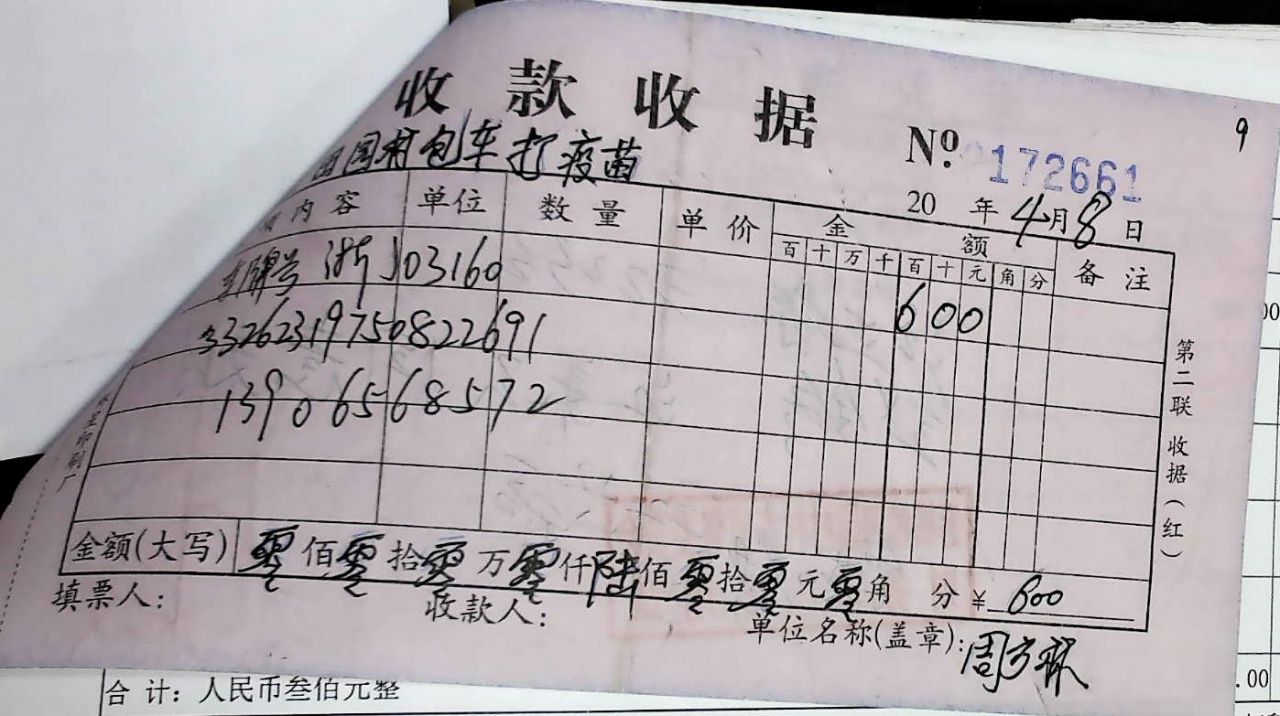 收款收据
9
No. 172661
田园村包车打疫苗
20 年 4月 8日
内容 单位 数量 单价 金额 备注
百 十 万 千 百 十 元 角 分
车牌号 浙J03160 600
33262319750822691
13906568572
第二联 收据(红)
印刷厂
金额(大写) 零佰零拾零万零仟陆佰零拾零元零角 分 ¥ 600
填票人: 收款人: 单位名称(盖章): 周方林
合 计: 人民币叁佰元整
.00